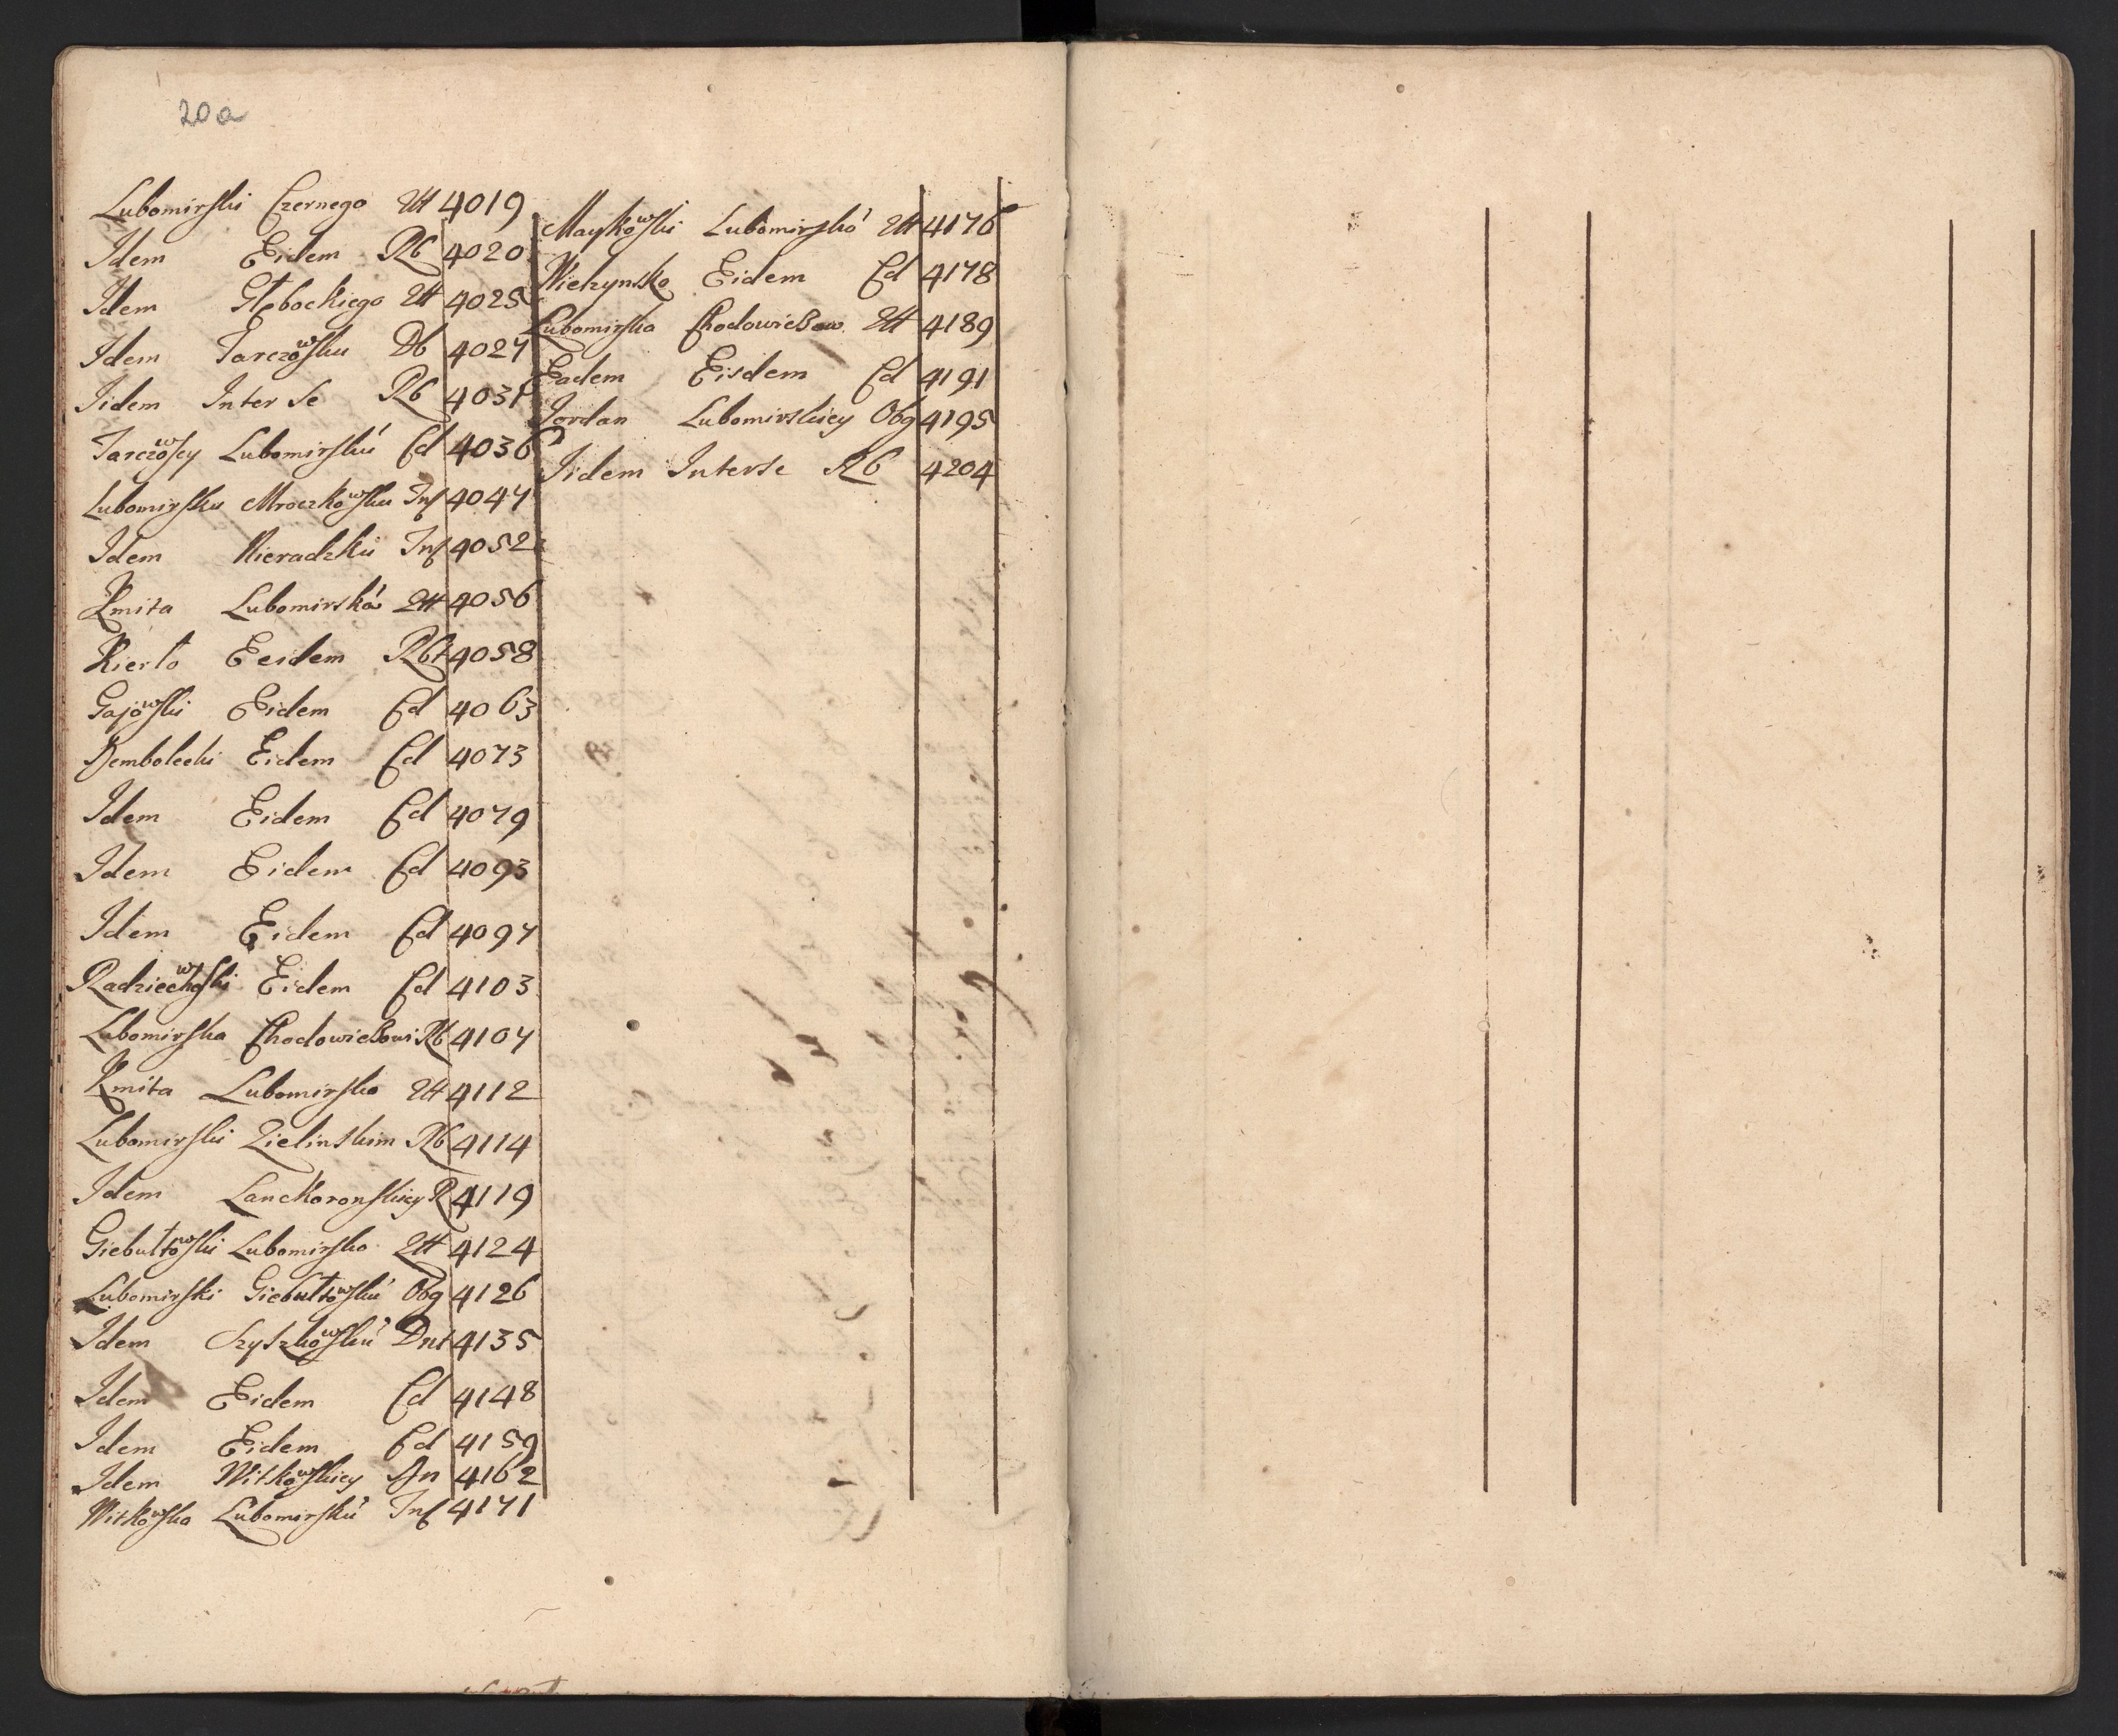 20a
Lubomirski Czernego Qtt 4019
Idem Eidem Rb 4020
Idem Głębockiego Qtt 4025
Idem Tarczowsku Db 4027
Iidem Inter Se Rb 4031
Tarczowscy Lubomirskú Ed 4036
Lubomirsku Mroczkowsku Inf 4047
Idem Nieradzkú Inf 4052
Kmita Lubomirská Qtt 4056
Kierło Eeidem Rbt 4058
Gajowski Eidem Ed 4063
Dembolecki Eidem Ed 4073
Idem Eidem Ed 4079
Idem Eidem Ed 4093
Idem Eidem Ed 4097
Radziechowski Eidem Ed 4103
Lubomirska Chodowickowi Rb 4107
Kmita Lubomirsko Qtt 4112
Lubomirski Zielinskim Rb 4114
Idem Lanckoronskiey R 4119
Giebułtowski Lubomirsko Qtt 4124
Lubomirski Giebułtowskú Obg 4126
Idem Szyszkowskú Dnt 4135
Idem Eidem Ed 4148
Idem Eidem Ed 4159
Idem Witkowskiey An 4162
Witkowska Lubomirskú Inf 4171
Maykowski Lubomirskó Qtt 4176
Eidem Ed 4178
Lubomirska Chodowickow. Qtt 4189
Eadem Eisdem Ed 4191
Jordan Lubomirskiey Obg 4195
Iidem Interse Rb 4204